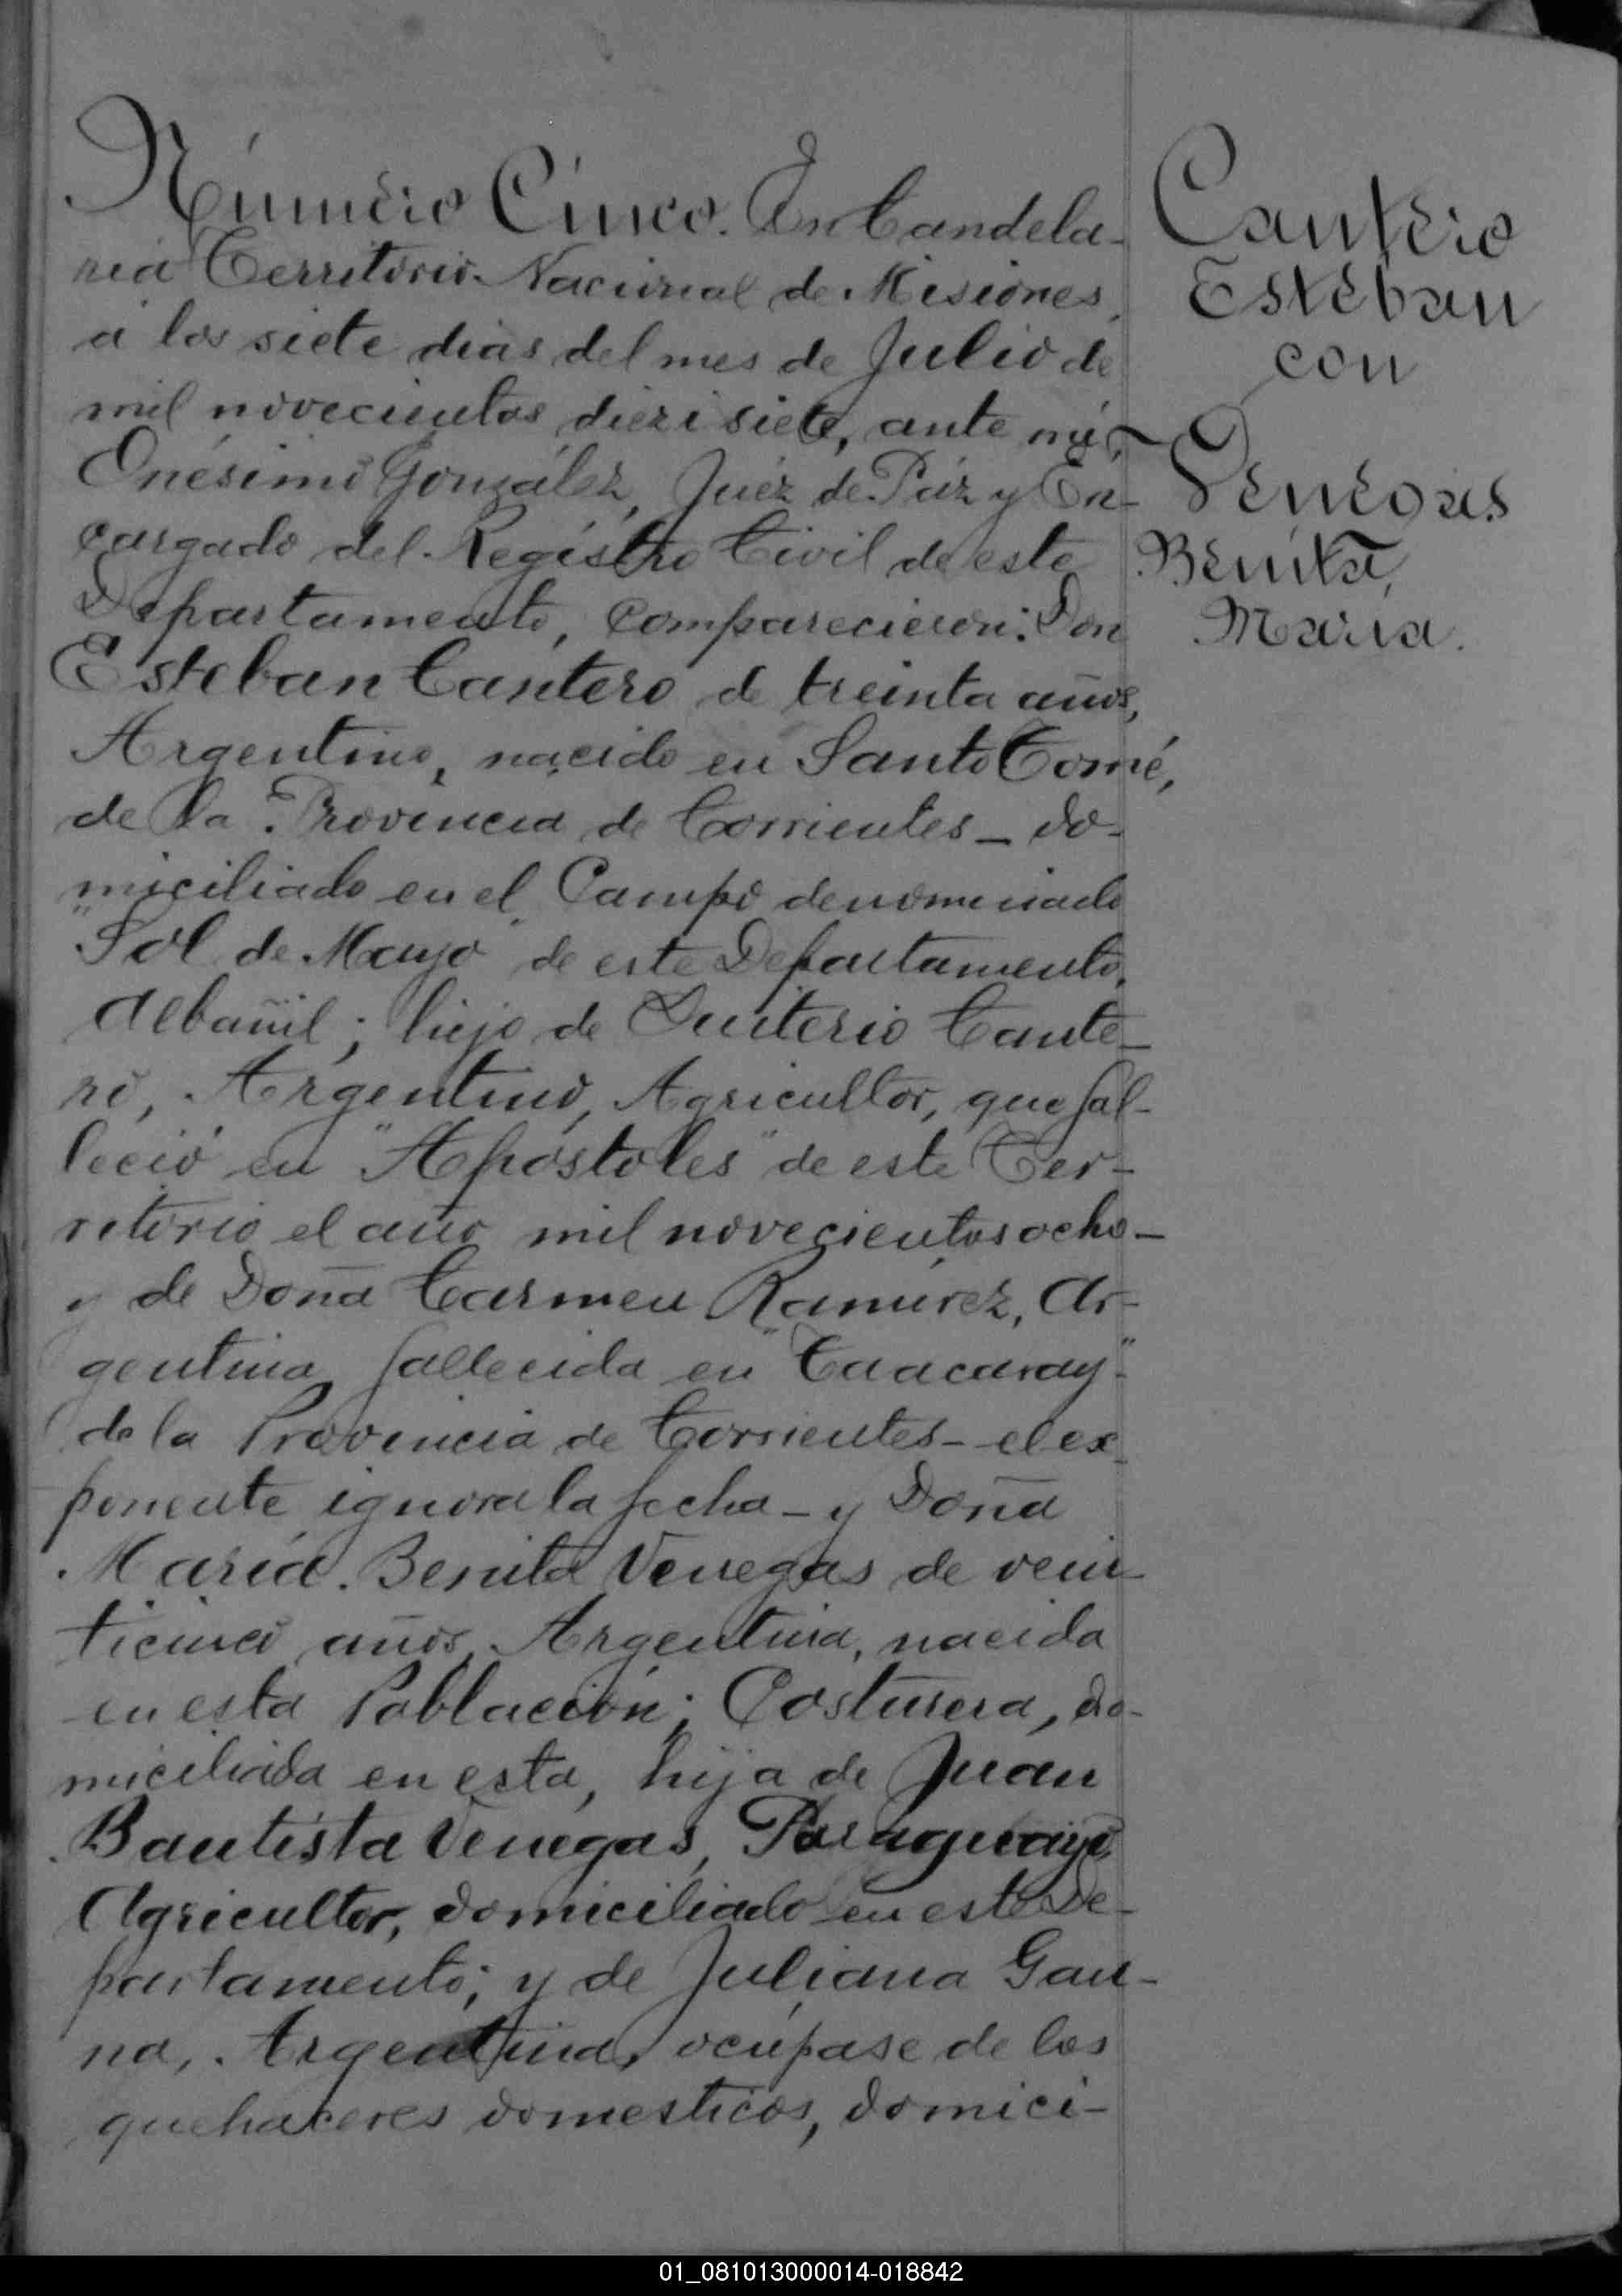 Número Cinco. En Candela-
ria Territorio Nacional de Misiones,
á los siete dias del mes de Julio de
mil novecientos diezisiete, ante mí,
Onésimo González, Juéz de Páz y En-
cargado del Registro Civil de este
Departamento, comparecieron: Don
Esteban Cantero de treinta años,
Argentino, nacido en Santo Tomé,
de la Provincia de Corrientes - do-
miciliado en el Campo denominado
"Sol de Mayo" de este Departamento,
Albañil; hijo de Quiterio Cante-
ro, Argentino, Agricultor, que fal-
leció en "Apóstoles" de este Ter-
ritorio el año mil novecientos ocho -
y de Doña Carmen Ramírez, Ar-
gentina, fallecida en "Caacaray"-
de la Provincia de Corrientes - el ex-
ponente ignora la fecha - y Doña
María Benita Venegas de vein-
ticinco años, Argentina, nacida
en esta Población; Costurera, do-
miciliada en esta, hija de Juán
Bautista Venegas, Paraguayo,
Agricultor, domiciliado en este De-
partamento; y de Juliana Gau-
na, Argentina, ocúpase de los
quehaceres domesticos, domici-
Cantero
Estéban
con
Venegas
Benita,
María.
01_081013000014-018842